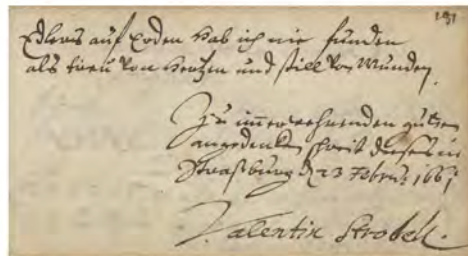 191
Edlers auf Erden hab ich nie funden
als treu von Hertzen und still von Munden
Zu immerwehrenden guten
angedencken schreib dieses in
Straßburg d 23 Febru: 1661
Valentin Strobell.